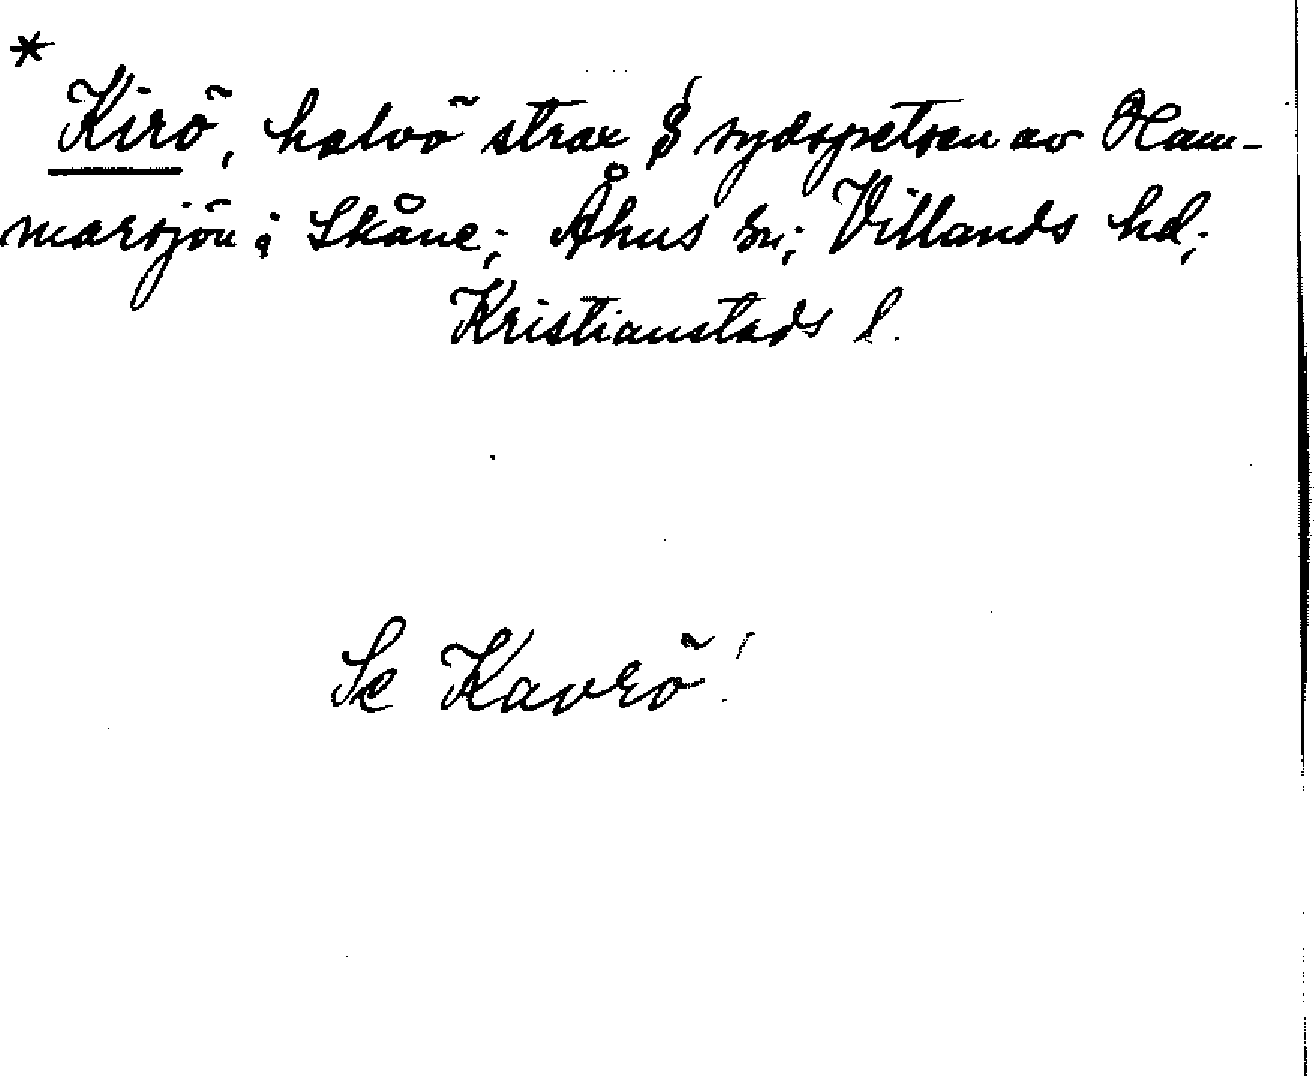 *
Kirö, halvö strax § sydspetsen av Ham-
marsjön i Skåne; Åhus sn; Villands hd;
Kristianstads l.
Se Kavrö!